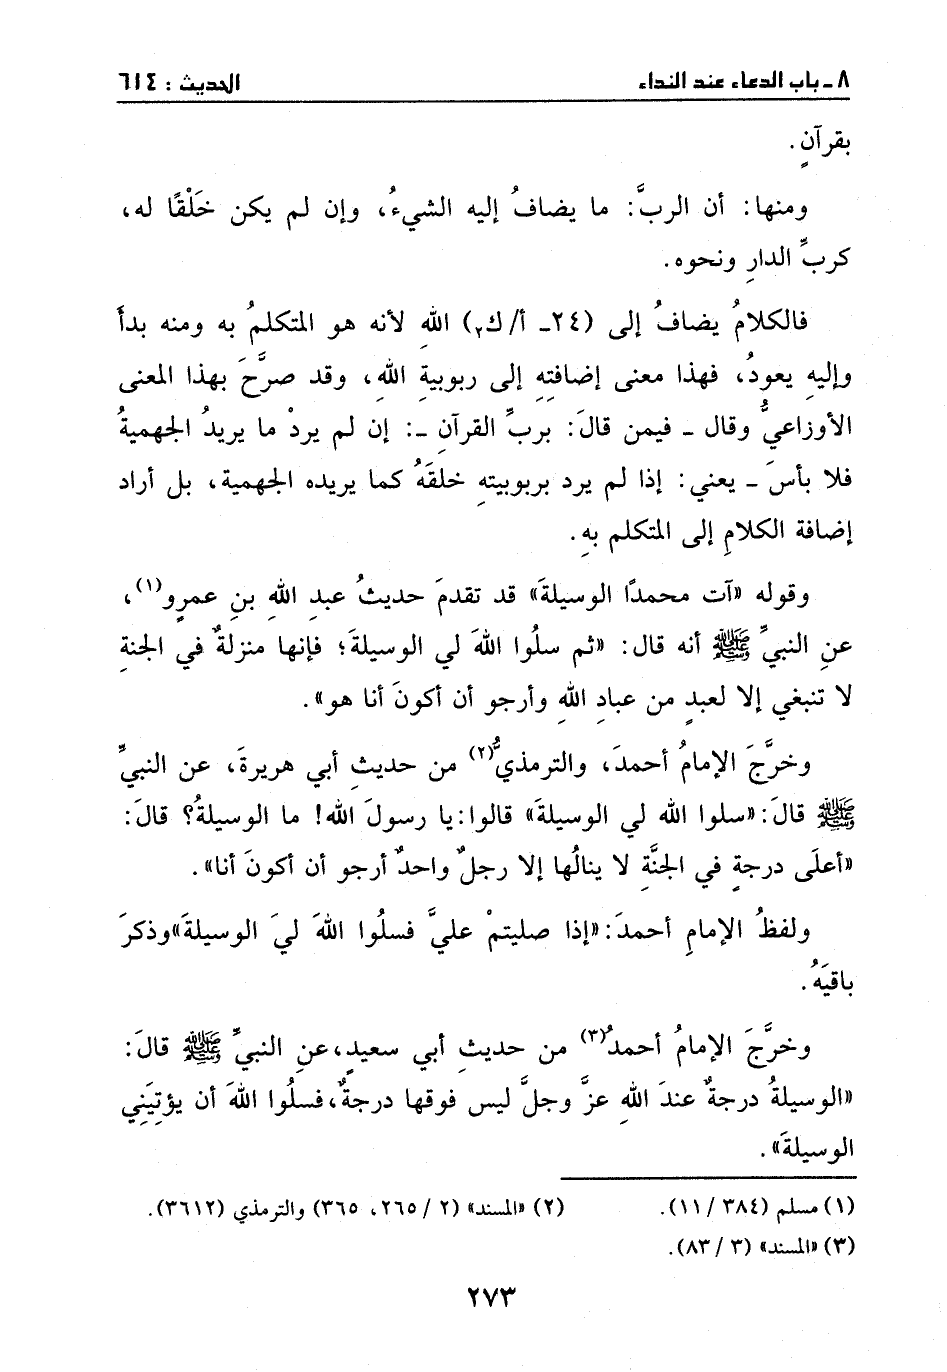 ٨ ـ باب الدعاء عند النداء
الحديث : ٦١٤
بقرآنٍ.
ومنها: أن الربَّ: ما يضافُ إليه الشيءُ، وإن لم يكن خَلْقًا له،
كربِّ الدارِ ونحوه.
فالكلامُ يضافُ إلى (٢٤ـ أ/ ك٢) اللهِ لأنه هو المتكلمُ به ومنه بدأَ
وإليهِ يعودُ، فهذا معنى إضافتِهِ إلى ربوبيةِ اللهِ، وقد صرَّحَ بهذا المعنى
الأوزاعيُّ وقال ـ فيمن قالَ: بربِّ القرآنِ ـ: إن لم يردْ ما يريدُ الجهميةُ
فلا بأسَ ـ يعني: إذا لم يرد بربوبيتهِ خلقَهُ كما يريده الجهمية، بل أراد
إضافة الكلامِ إلى المتكلم بهِ.
وقوله «آت محمدًا الوسيلةَ» قد تقدمَ حديثُ عبدِ اللهِ بنِ عمرٍو(١)،
عنِ النبيِّ ﷺ أنه قال: «ثم سلُوا اللهَ لي الوسيلةَ؛ فإنها منزلةٌ في الجنةِ
لا تنبغي إلا لعبدٍ من عبادِ اللهِ وأرجو أن أكونَ أنا هو».
وخرَّجَ الإمامُ أحمدَ، والترمذيُّ(٢) من حديثِ أبي هريرةَ، عن النبيِّ
ﷺ قالَ: «سلوا الله لي الوسيلةَ» قالوا: يا رسولَ الله! ما الوسيلةُ؟ قالَ:
«أعلَى درجةٍ في الجنَّةِ لا ينالُها إلا رجلٌ واحدٌ أرجو أن أكونَ أنا».
ولفظُ الإمامِ أحمدَ: «إذا صليتمْ عليَّ فسلُوا اللهَ ليَ الوسيلةَ» وذكرَ
باقيَهُ.
وخرَّجَ الإمامُ أحمدُ(٣) من حديثِ أبي سعيدٍ، عنِ النبيِّ ﷺ قالَ:
«الوسيلةُ درجةٌ عندَ اللهِ عزَّ وجلَّ ليس فوقها درجةٌ، فسلُوا اللهَ أن يؤتِيَنِي
الوسيلةَ».
(١) مسلم (٣٨٤ / ١١).
(٢) «المسند» (٢ / ٢٦٥، ٣٦٥) والترمذي (٣٦١٢).
(٣) «المسند» (٣ / ٨٣).
٢٧٣